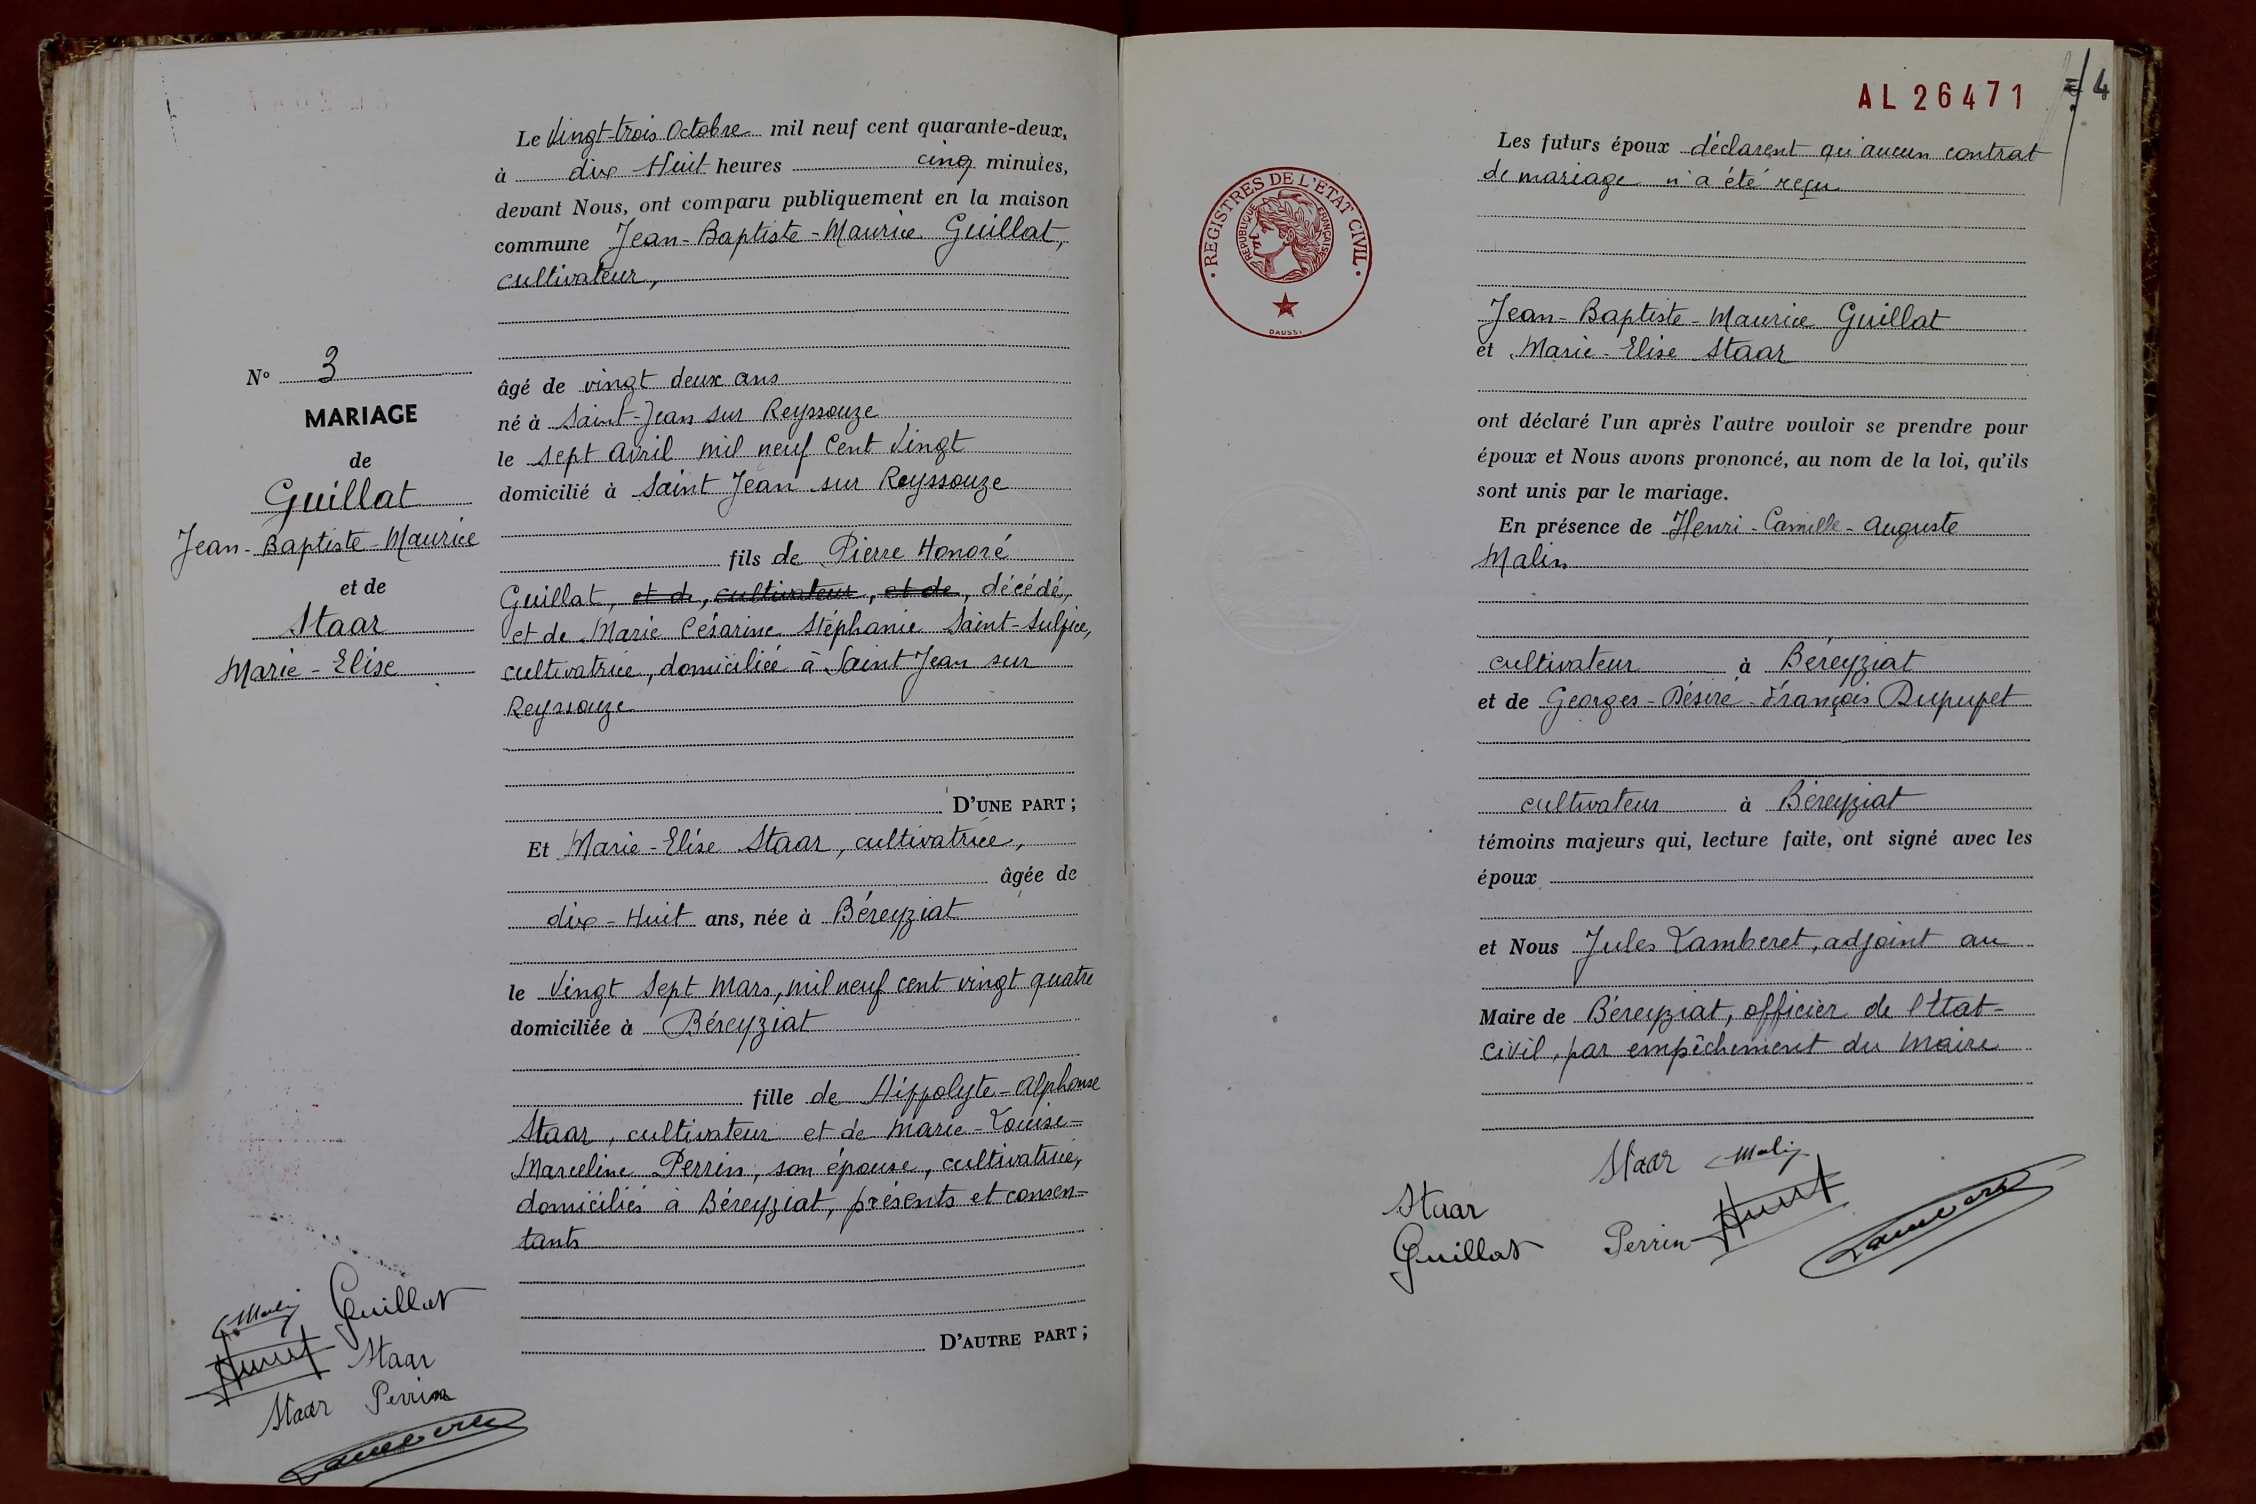 Le Vingt-trois Octobre mil neuf cent quarante-deux,
à dix Huit heures cinq minutes,
devant Nous, ont comparu publiquement en la maison
commune Jean-Baptiste-Maurice Guillat,
cultivateur,
âgé de vingt deux ans
né à Saint-Jean sur Reyssouze
le sept Avril mil neuf Cent Vingt
domicilié à Saint Jean sur Reyssouze
fils de Pierre Honoré
Guillat, et de, cultivateur, et de, décédé,
et de Marie Césarine Stéphanie Saint-Sulpice,
cultivatrice, domiciliée à Saint Jean sur
Reyssouze
D'UNE PART ;
Et Marie-Elise Staar, cultivatrice,
âgée de
dix-Huit ans, née à Béreyziat
le Vingt Sept Mars, mil neuf cent vingt quatre
domiciliée à Béreyziat
fille de Hippolyte-Alphonse
Staar, cultivateur et de Marie-Louise-
Marceline Perrin, son épouse, cultivatrice,
domiciliés à Béreyziat, présents et consen-
tants
D'AUTRE PART ;
N° 3
MARIAGE
de
Guillat
Jean-Baptiste-Maurice
et de
Staar
Marie-Elise
Malin Guillat
Staar
Staar Perrin
Lamberet
AL 26471
4
REGISTRES DE L'ETAT CIVIL
REPUBLIQUE FRANÇAISE
DAUSSI
Les futurs époux déclarent qu'aucun contrat
de mariage n'a été reçu
Jean-Baptiste-Maurice Guillat
et Marie-Elise Staar
ont déclaré l'un après l'autre vouloir se prendre pour
époux et Nous avons prononcé, au nom de la loi, qu'ils
sont unis par le mariage.
En présence de Henri-Camille-Auguste
Malin
cultivateur à Béreyziat
et de Georges-Désiré-François Dupupet
cultivateur à Béreyziat
témoins majeurs qui, lecture faite, ont signé avec les
époux
et Nous Jules Lamberet, adjoint au
Maire de Béreyziat, officier de l'Etat-
Civil, par empêchement du Maire
Staar Malin
Staar
Guillat Perrin
Lamberet